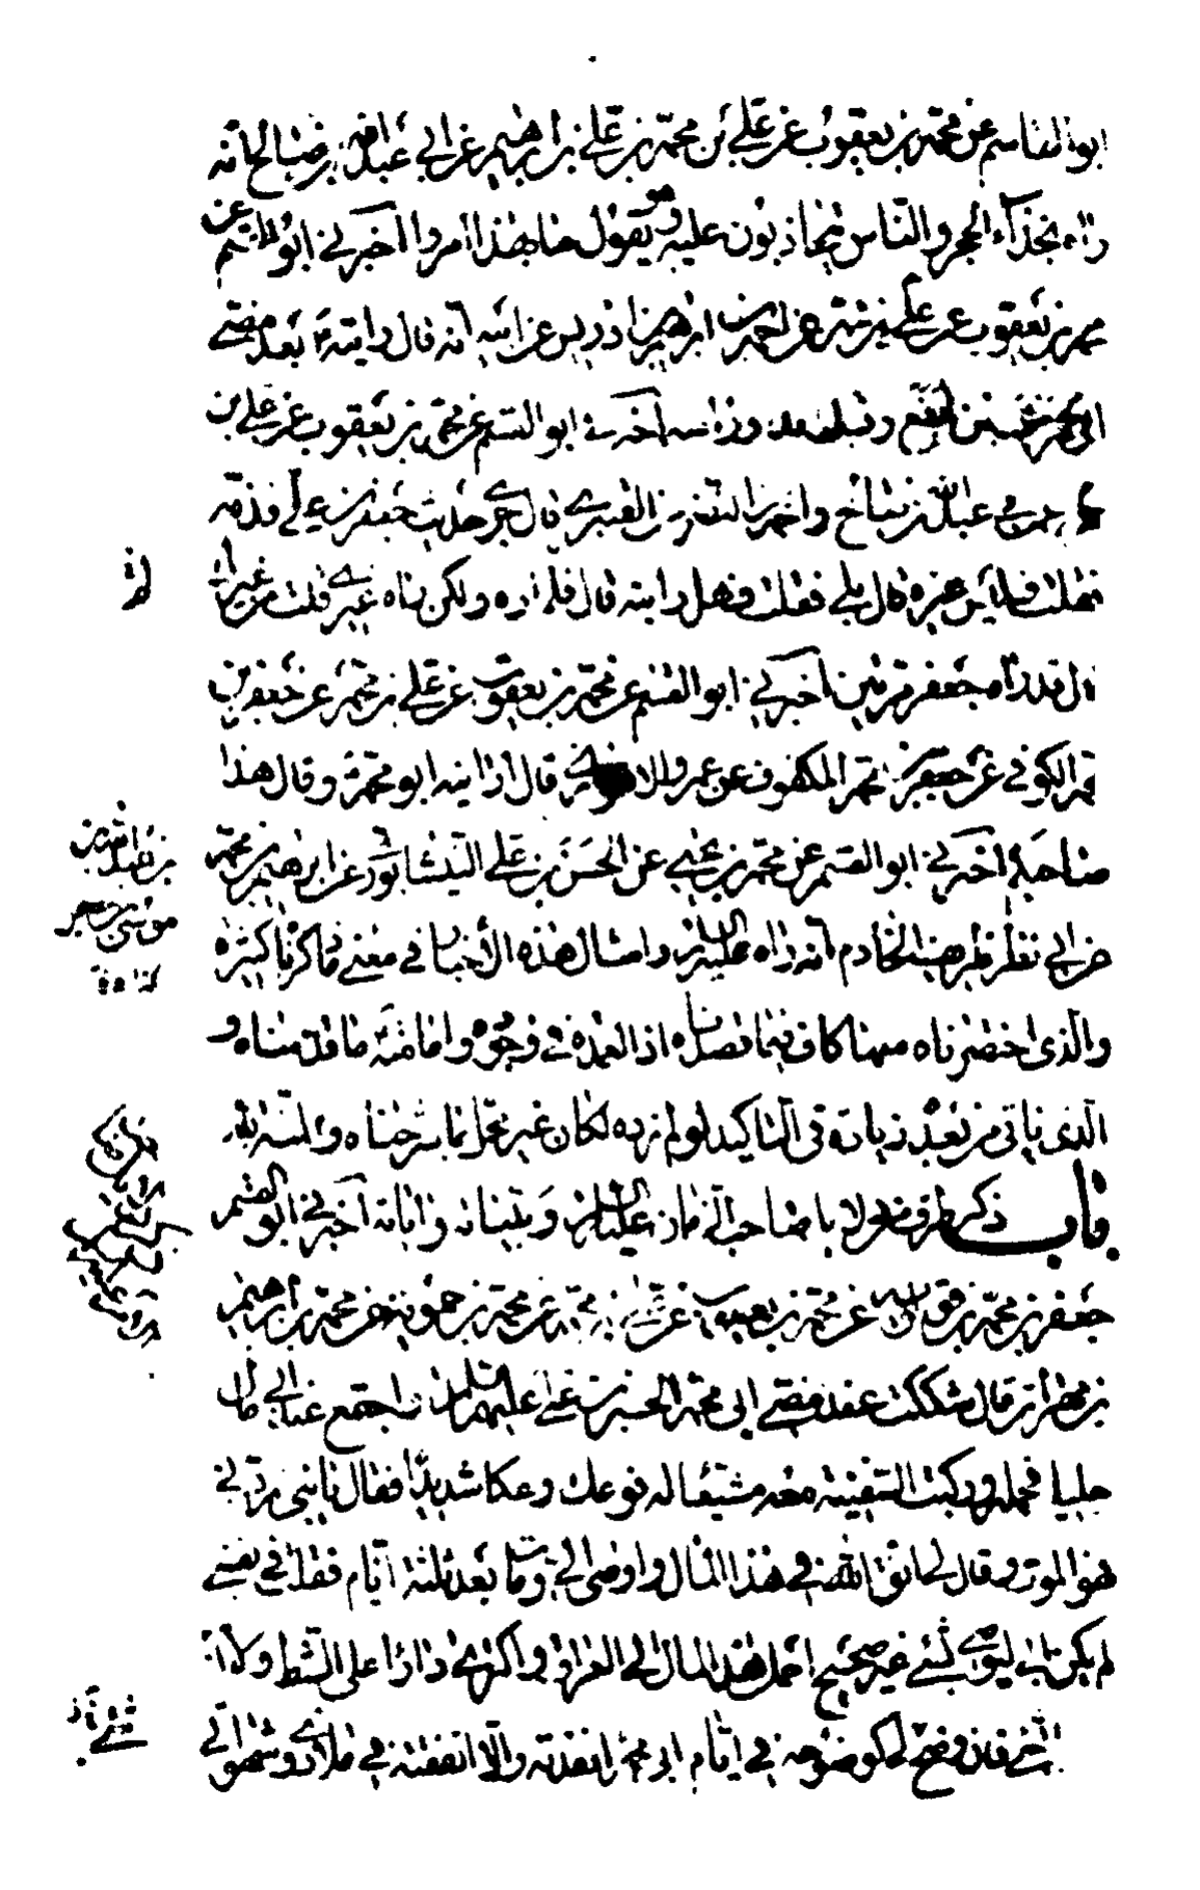 ابو القاسم عن محمد بن يعقوب عن علي بن محمد بن علي بن ابراهيم عن ابي عبد الله بن صالح انه
راه بحذآء الحجر والناس يتجاذبون عليه وهو يقول ما بهذا امروا اخبرني ابو القسم عن
محمد بن يعقوب عن علي بن محمد عن احمد بن ابرهيم بن ادريس عن ابيه انه قال رايته ع بعد مضي
ابي محمد حين ايفع وقبلت يده وراسه اخبرني ابو القسم عن محمد بن يعقوب عن علي بن
محمد عن عبد الله بن صالح واحمد بن النضر عن القنبري قال جرى حديث جعفر بن علي فذمه
فقلت فليس غيره قال بلى فقلت فهل رايته قال فلم اره ولكن راه غيري قلت من غيرك
قال قد راه جعفر مرتين اخبرني ابو القسم عن محمد بن يعقوب عن علي بن محمد عن جعفر بن
محمد الكوفي عن جعفر بن محمد المكفوف عن عمرو الاهوازي قال ارانيه ابو محمد ع وقال هذا
صاحبكم اخبرني ابو القسم عن محمد بن يحيى عن الحسن بن علي النيشابوري عن ابرهيم بن محمد
عن ابي نصر طريف الخادم انه راه عليه السلام وامثال هذه الاخبار في معنى ما ذكرناه كثيرة
والذي اختصرناه منها كاف فيما قصدناه اذ العمدة في وجوده وامامته ع ما قدمناه و
الذي ياتي من بعد زيادة في التاكيد لو لم نورده لكان غير مخل بما شرحناه والمنة لله
باب ذكر طرف من دلايل صاحب الزمان عليه السلام وبيناته واياته اخبرني ابو القسم
جعفر بن محمد بن قولويه عن محمد بن يعقوب عن علي بن محمد عن محمد بن حمويه عن محمد بن ابرهيم
بن مهزيار قال شككت عند مضي ابي محمد الحسن بن علي عليهما السلام واجتمع عند ابي مال
جليل فحمله وركبت السفينة معه مشيعا له فوعك وعكا شديدا فقال يا بني ردني
فهو الموت وقال لي اتق الله في هذا المال واوصى الي ومات بعد ثلثة ايام فقلت في نفسي
لم يكن ابي ليوصي بشئ غير صحيح احمل هذا المال الى العراق واكتري دارا على الشط ولا اخبر
احدا بشئ فان وضح لي كوضوحه في ايام ابي محمد انفذته والا انفقته في ملاذي وشهواتي
له
بن عبد الله بن
موسى بن جعفر